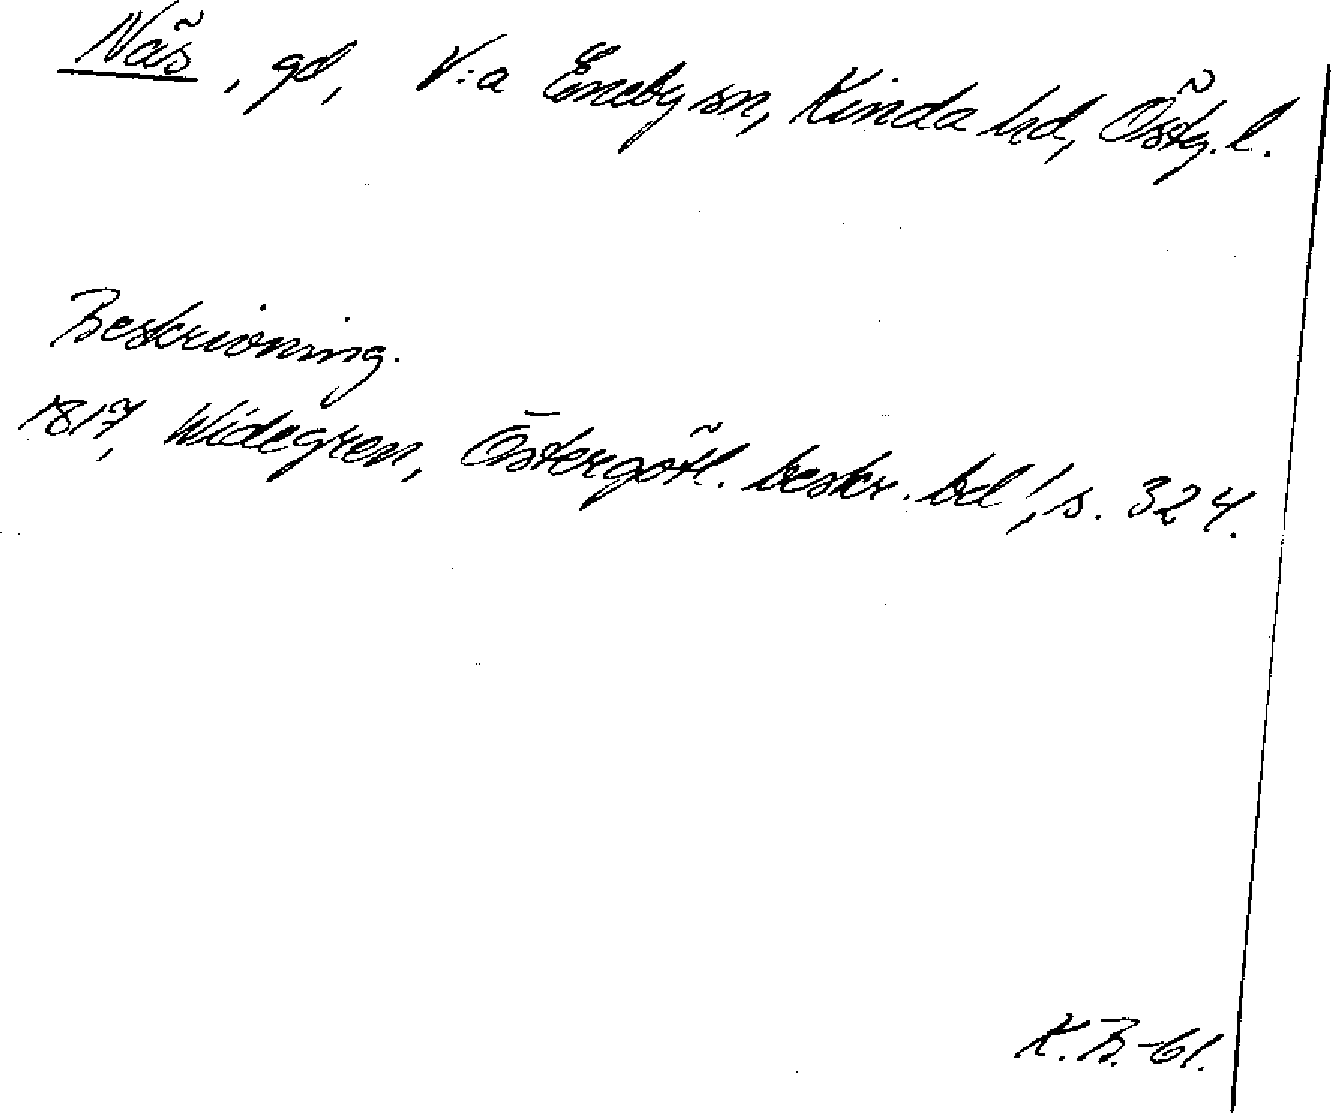 Näs, gd, V:a Eneby sn, Kinda hd, Östg. l.
Beskrivning.
1817, Widegren, Östergötl. beskr. bd 1, s. 324.
K.B.-61.